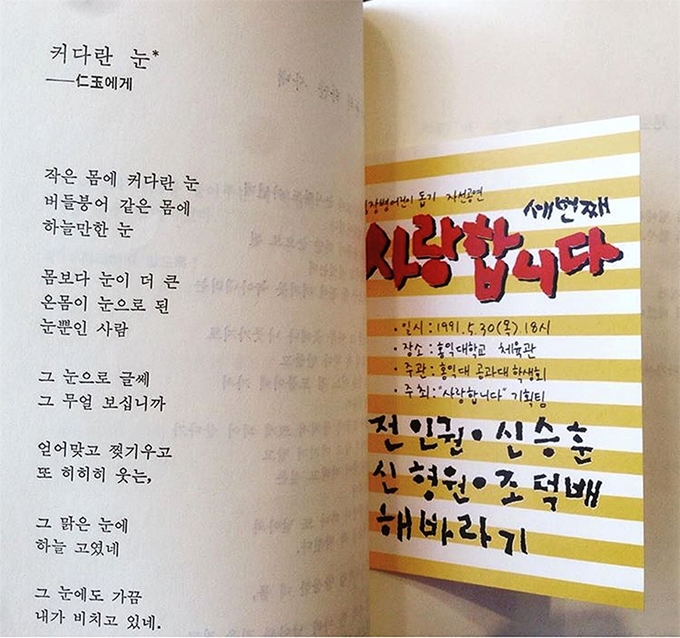 커다란 눈*
──仁玉에게
작은 몸에 커다란 눈
버들붕어 같은 몸에
하늘만한 눈
몸보다 눈이 더 큰
온몸이 눈으로 된
눈뿐인 사람
그 눈으로 글쎄
그 무얼 보십니까
얻어맞고 찢기우고
또 히히히 웃는,
그 맑은 눈에
하늘 고였네
그 눈에도 가끔
내가 비치고 있네.
심장병어린이 돕기 자선공연
세번째
사랑합니다
· 일시 : 1991. 5. 30 (목) 18시
· 장소 : 홍익대학교 체육관
· 주관 : 홍익대 공과대 학생회
· 주최 : "사랑합니다" 기획팀
전인권 · 신승훈
신형원 · 조덕배
해바라기